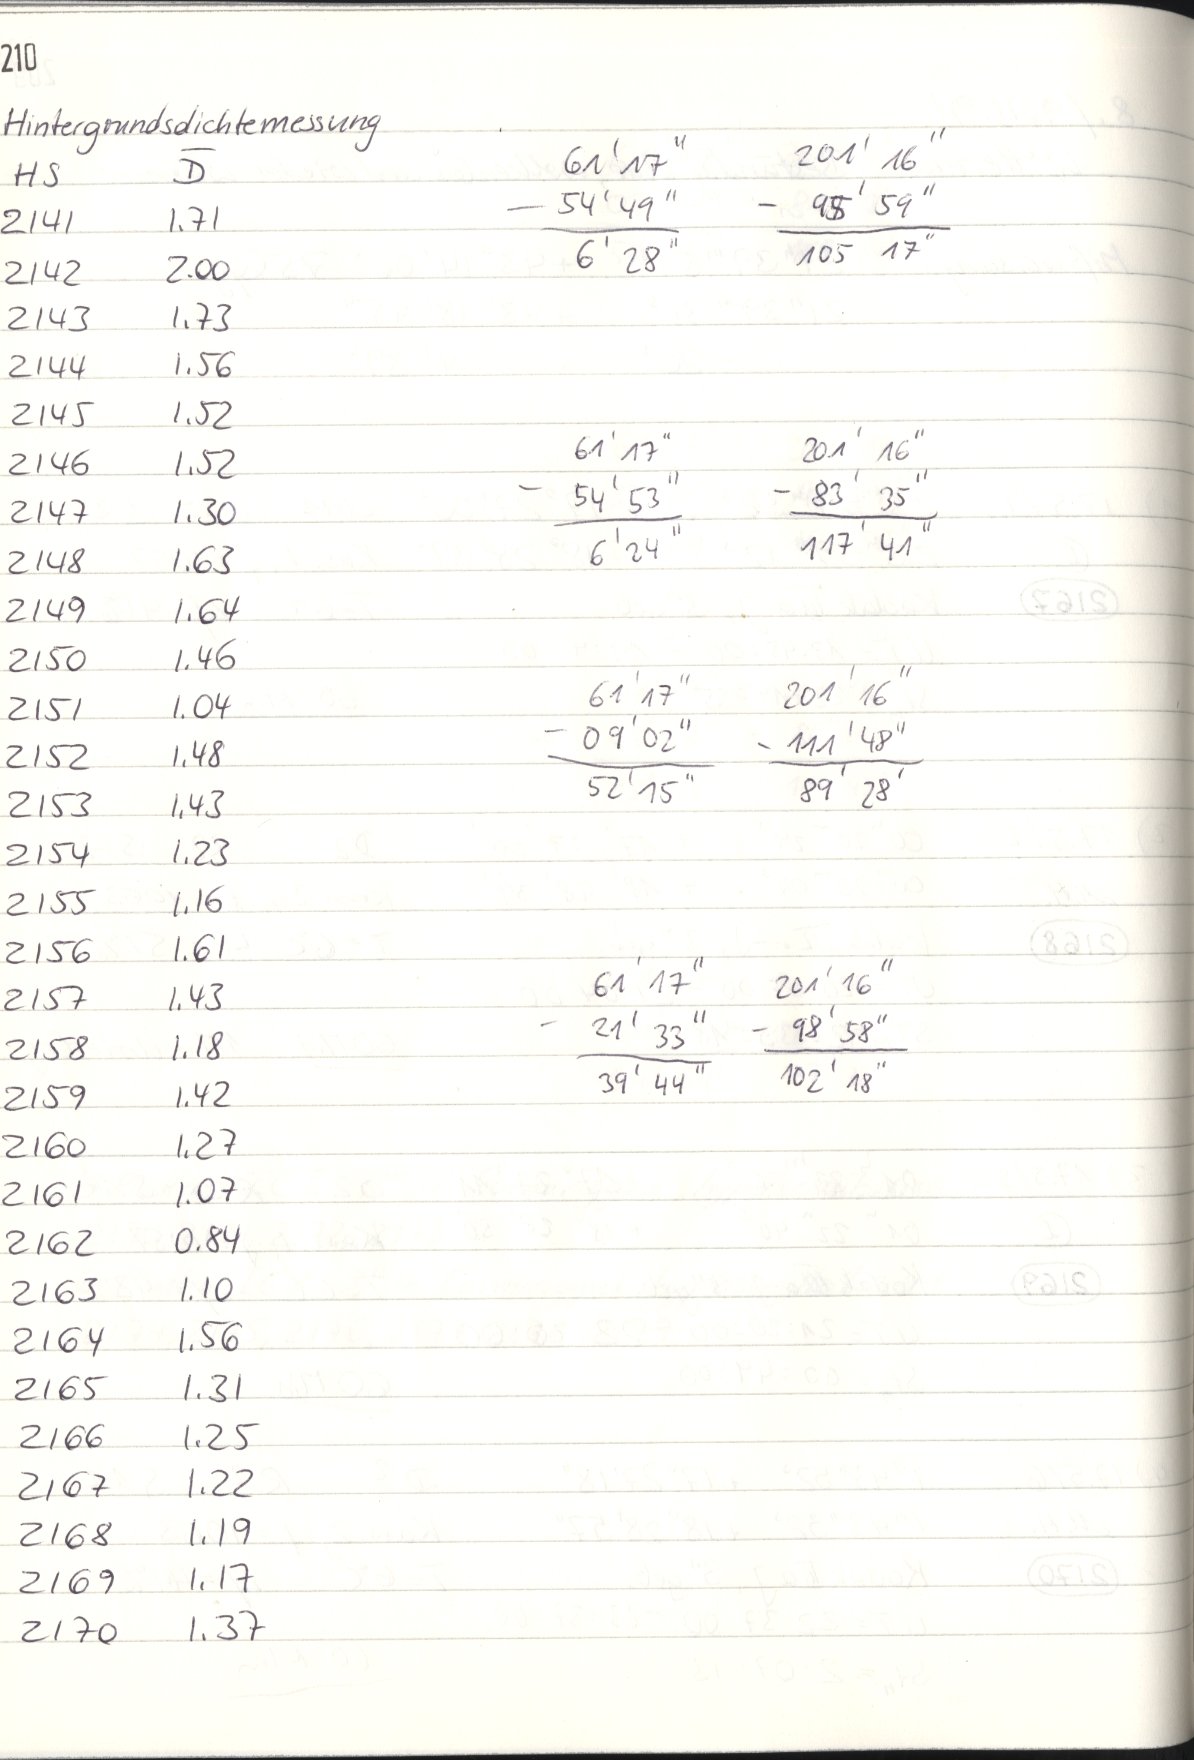 210
Hintergrundsdichtemessung
HS D̅
2141 1.71
2142 2.00
2143 1.73
2144 1.56
2145 1.52
2146 1.52
2147 1.30
2148 1.63
2149 1.64
2150 1.46
2151 1.04
2152 1.48
2153 1.43
2154 1.23
2155 1.16
2156 1.61
2157 1.43
2158 1.18
2159 1.42
2160 1.27
2161 1.07
2162 0.84
2163 1.10
2164 1.56
2165 1.31
2166 1.25
2167 1.22
2168 1.19
2169 1.17
2170 1.37
61' 17" 201' 16"
- 54' 49" - 95' 59"
6' 28" 105 17"
61' 17" 201' 16"
- 54' 53" - 83' 35"
6' 24" 117' 41"
61' 17" 201' 16"
- 09' 02" - 111' 48"
52' 15" 89' 28'
61' 17" 201' 16"
- 21' 33" - 98' 58"
39' 44" 102' 18"